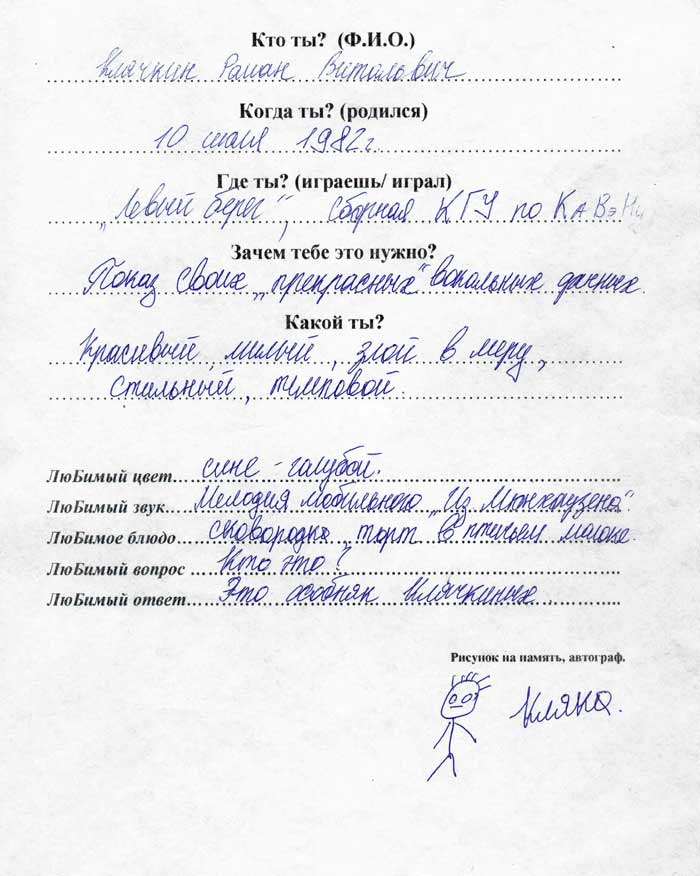 Кто ты? (Ф.И.О.)
Клячкин Роман Витальевич
Когда ты? (родился)
10 июля 1982г.
Где ты? (играешь/ играл)
"Левый берег", сборная КГУ по КаВэНу
Зачем тебе это нужно?
Показ своих "прекрасных" вокальных данных.
Какой ты?
Красивый, милый, злой в меру,
стильный, темповой.
ЛюБимый цвет сине-галубой.
ЛюБимый звук Мелодия мобильного "Из Мюнхаузена".
ЛюБимое блюдо сковородка торт в птичьем молоке.
ЛюБимый вопрос Кто это?
ЛюБимый ответ Это особняк Клячкиных
Рисунок на память, автограф.
Кляча.